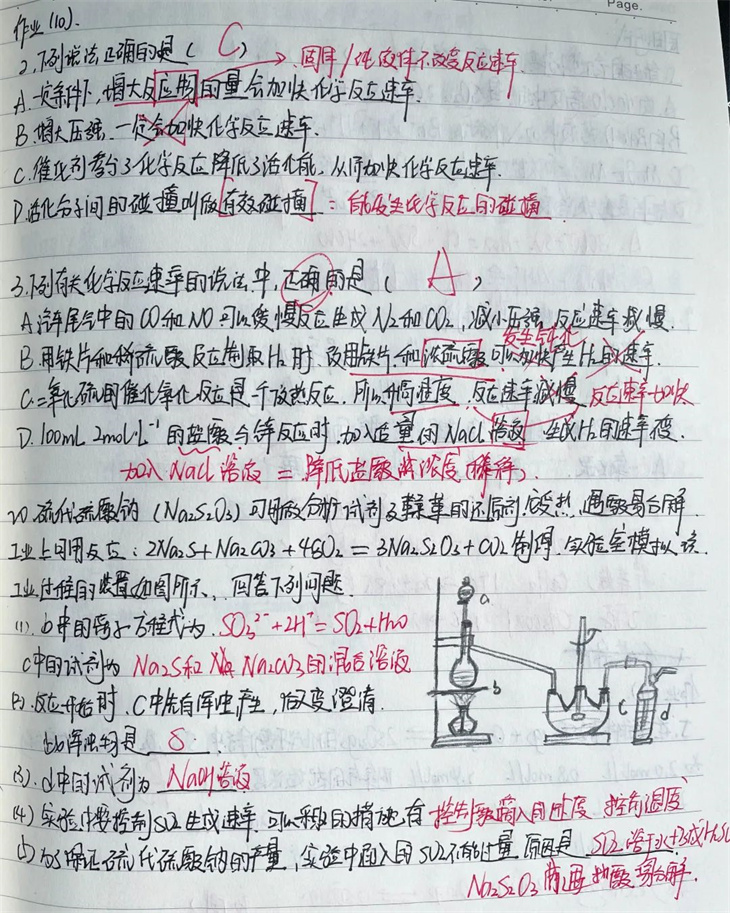 Page.
作业(10).
2.下列说法正确的是( C )
固体/纯液体不改变反应速率
A.一定条件下,增大反应物的量会加快化学反应速率.
B.增大压强,一定会加快化学反应速率.
C.催化剂参与了化学反应降低了活化能,从而加快化学反应速率.
D.活化分子间的碰撞叫做[有效碰撞] = 能发生化学反应的碰撞
3.下列有关化学反应速率的说法中,正确的是( A )
A.汽车尾气中的CO和NO可以缓慢反应生成N2和CO2,减小压强,反应速率减慢.
发生钝化
B.用铁片和稀硫酸反应制取H2时,改用铁片和浓硫酸可以加快产生H2的速率.
C.二氧化硫的催化氧化反应是一个放热反应.所以升高温度,反应速率减慢 反应速率加快
D.100mL 2mol·L⁻¹的盐酸与锌反应时,加入适量的NaCl溶液 生成H2的速率不变.
加入NaCl溶液 = 降低盐酸浓度(稀释).
20.硫代硫酸钠(Na2S2O3)可用做分析试剂及鞣革的还原剂.受热、遇酸易分解
工业上可用反应:2Na2S+Na2CO3+4SO2=3Na2S2O3+CO2制得.实验室模拟该
工业过程的装置如图所示,回答下列问题
(1).b中的离子方程式为 SO3²⁻+2H⁺=SO2+H2O
a
c中的试剂为 Na2S和 Na2CO3的混合溶液
b
c
d
(2).反应开始时,C中先有浑浊产生,后又变澄清.
此浑浊物是 S
(3).d中的试剂为 NaOH溶液
(4)实验中要控制SO2生成速率.可以采取的措施有 控制酸滴入的速度 控制温度
(5)为了保证硫代硫酸钠的产量,实验中通入的SO2不能过量 原因是 SO2溶于水生成H2SO
Na2S2O3 遇酸易分解.